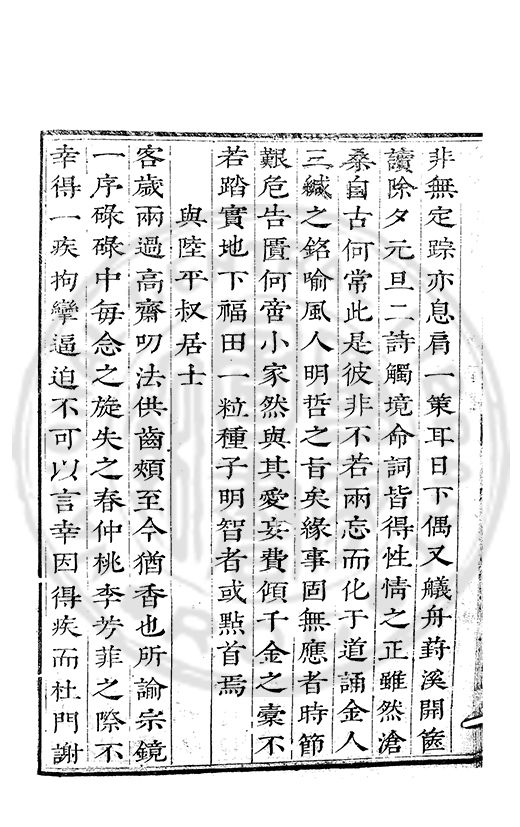 非無定踪亦息肩一策耳日下偶又艤舟葑溪開篋
讀除夕元旦二詩觸境命詞皆得性情之正雖然滄
桑自古何常此是彼非不若兩忘而化于道誦金人
三緘之銘喻風人明哲之旨矣緣事固無應者時節
艱危告匱何啻小家然與其愛妄費傾千金之橐不
若踏實地下福田一粒種子明智者或㸃首焉
與陸平叔居士
客歲兩過高齋叨法供齒頰至今猶香也所諭宗鏡
一序碌碌中每念之旋失之春仲桃李芳菲之際不
幸得一疾拘攣逼迫不可以言幸因得疾而杜門謝